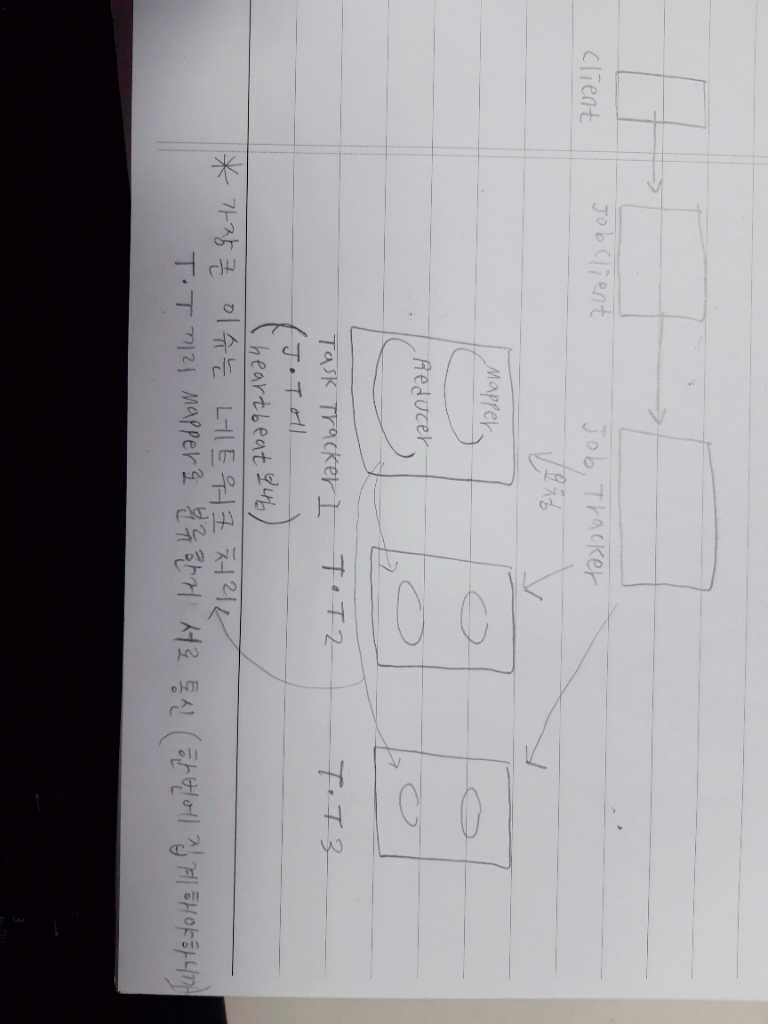 Client
Job Client
Job Tracker
요청
Mapper
Reducer
Task Tracker 1
T.T 2
T.T 3
(J.T에
heartbeat 보냄)
* 가장 큰 이슈는 네트워크 처리
T.T 끼리 Mapper로 분류한거 서로 통신 (한번에 집계해야하니까)